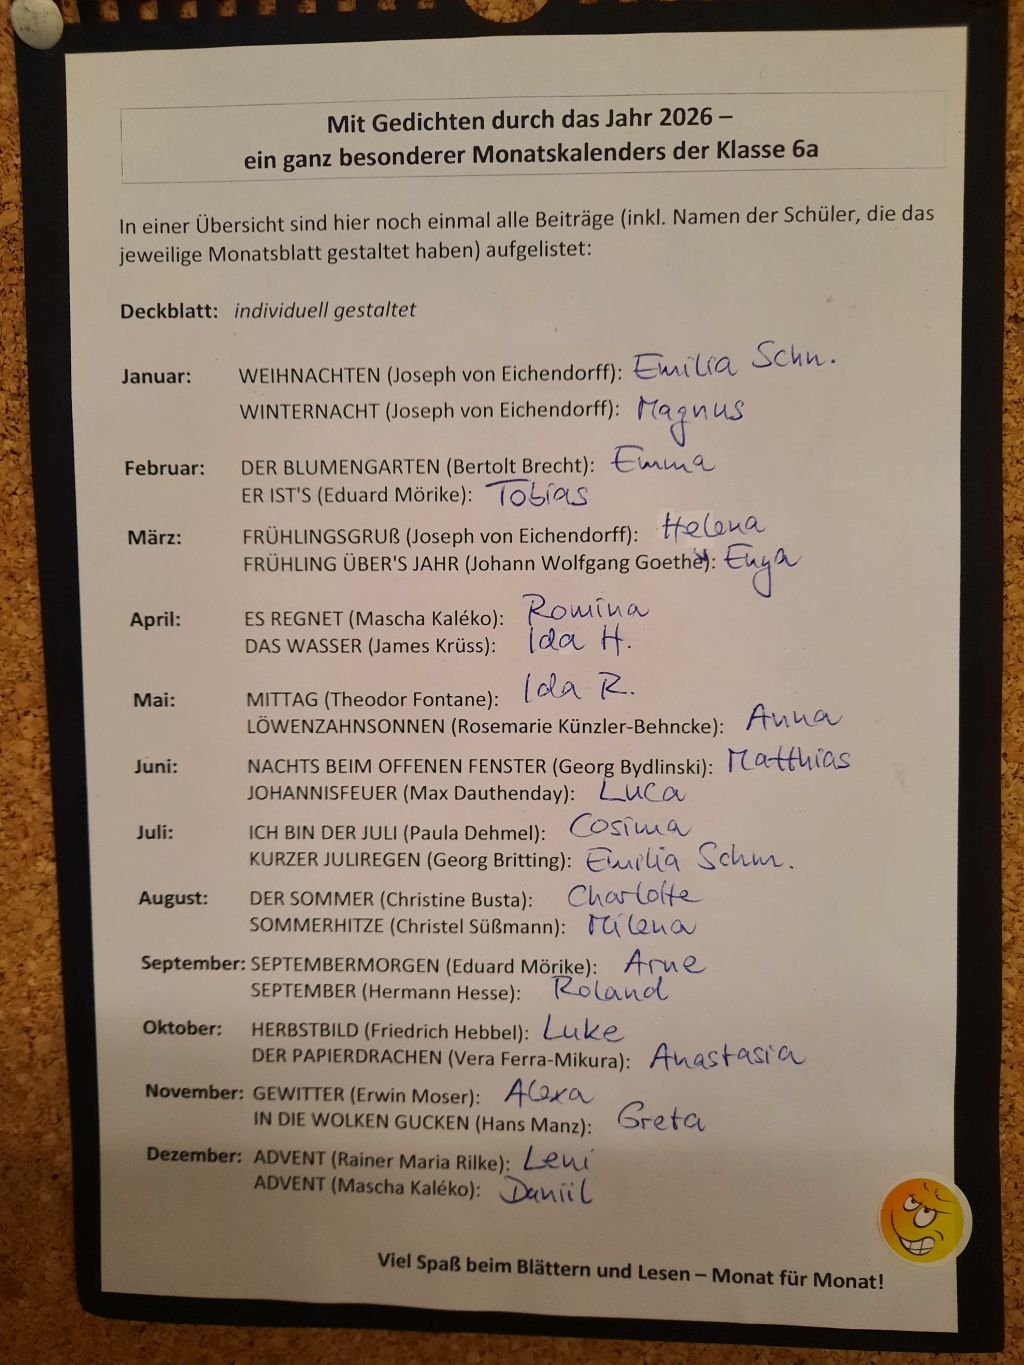 Mit Gedichten durch das Jahr 2026 –
ein ganz besonderer Monatskalenders der Klasse 6a
In einer Übersicht sind hier noch einmal alle Beiträge (inkl. Namen der Schüler, die das
jeweilige Monatsblatt gestaltet haben) aufgelistet:
Deckblatt: individuell gestaltet
Januar: WEIHNACHTEN (Joseph von Eichendorff): Emilia Schn.
WINTERNACHT (Joseph von Eichendorff): Magnus
Februar: DER BLUMENGARTEN (Bertolt Brecht): Emma
ER IST'S (Eduard Mörike): Tobias
März: FRÜHLINGSGRUß (Joseph von Eichendorff): Helena
FRÜHLING ÜBER'S JAHR (Johann Wolfgang Goethe): Enya
April: ES REGNET (Mascha Kaléko): Romina
DAS WASSER (James Krüss): Ida H.
Mai: MITTAG (Theodor Fontane): Ida R.
LÖWENZAHNSONNEN (Rosemarie Künzler-Behncke): Anna
Juni: NACHTS BEIM OFFENEN FENSTER (Georg Bydlinski): Matthias
JOHANNISFEUER (Max Dauthenday): Luca
Juli: ICH BIN DER JULI (Paula Dehmel): Cosima
KURZER JULIREGEN (Georg Britting): Emilia Schm.
August: DER SOMMER (Christine Busta): Charlotte
SOMMERHITZE (Christel Süßmann): Milena
September: SEPTEMBERMORGEN (Eduard Mörike): Arne
SEPTEMBER (Hermann Hesse): Roland
Oktober: HERBSTBILD (Friedrich Hebbel): Luke
DER PAPIERDRACHEN (Vera Ferra-Mikura): Anastasia
November: GEWITTER (Erwin Moser): Alexa
IN DIE WOLKEN GUCKEN (Hans Manz): Greta
Dezember: ADVENT (Rainer Maria Rilke): Leni
ADVENT (Mascha Kaléko): Daniil
Viel Spaß beim Blättern und Lesen – Monat für Monat!